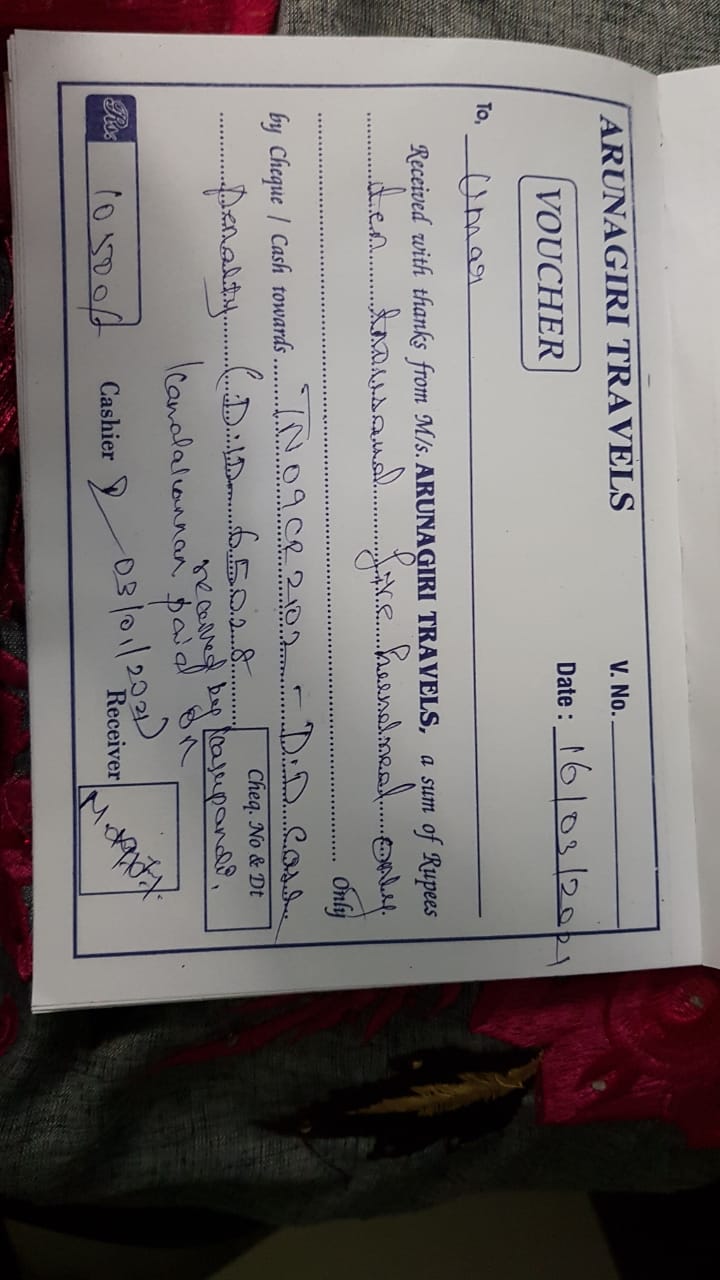 ARUNAGIRI TRAVELS
V. No.
VOUCHER
Date : 16/03/2021
To, Umar
Received with thanks from M/s. ARUNAGIRI TRAVELS, a sum of Rupees
ten thousand five hundred only.
Only
by Cheque / Cash towards TN 09 CR 2102 - D.D Case
Penalty (D.D 65028
Cheq. No & Dt
received by
Kamalakannan, paid on
Rs. 10500/-
Cashier
03/01/2021)
Receiver